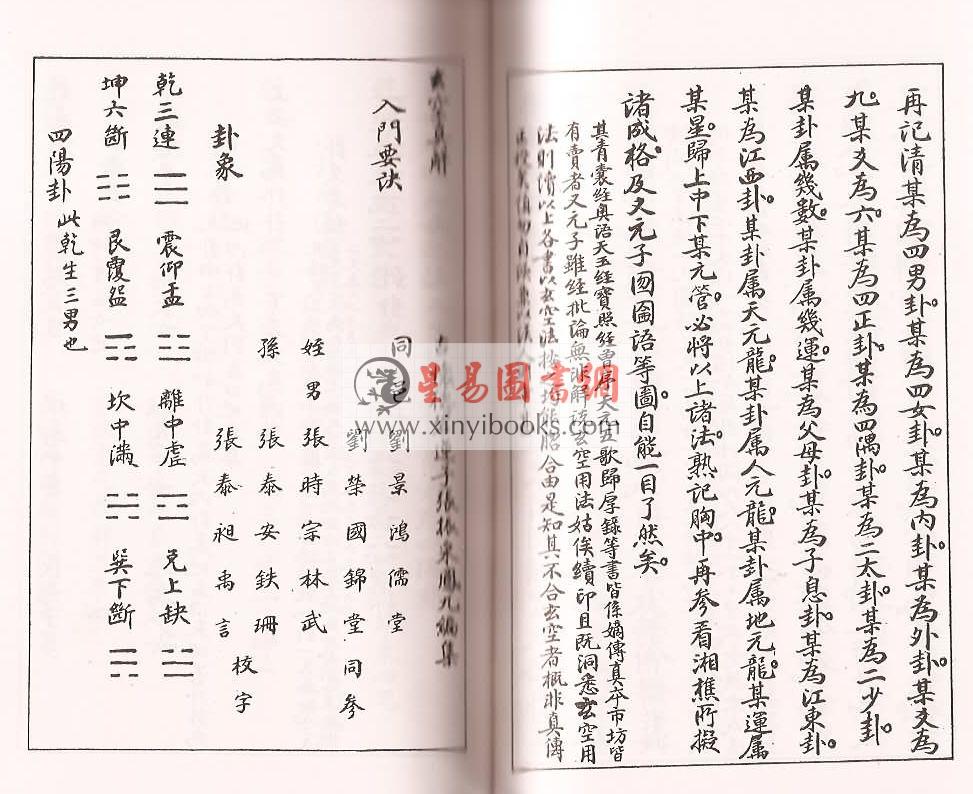 再记清某為四男卦。某為四女卦。某為内卦。某為外卦。某爻為
九。某爻為六。某為四正卦。某為四隅卦。某為二太卦。某為二少卦。
某卦属幾數。某卦属幾運。某為父母卦。某為子息卦。某為江東卦。
某為江西卦。某卦属天元龍。某卦属人元龍。某卦属地元龍。某運属
某星。歸上中下某元管。必將以上諸法。熟记胸中。再參看湘樵所擬
諸成格。及大元子囫圇語等圖。自能一目了然矣。
其青囊經奥语天玉經寶照經曾序天元五歌歸厚錄等書皆係嫡傳真本市坊皆
有賣者又元子雖經批論無非解玄空用法姑俟續印且既洞悉玄空用
法則凟以上各書以玄空法 合由是知其不合玄空者概非真傳
空真解
張 東鳳九編集
入門要訣
同邑 劉景鴻儒堂
劉榮國錦堂同參
姪男 張時宗林武
孫 張泰安鉄珊
張泰昶禹言
校字
卦象
乾三連 ☰ 震仰盂 ☳ 離中虛 ☲ 兑上缺 ☱
坤六斷 ☷ 艮覆盌 ☶ 坎中满 ☵ 巽下斷 ☴
四陽卦 此乾生三男也
星易圖書網
www.xinyibooks.com